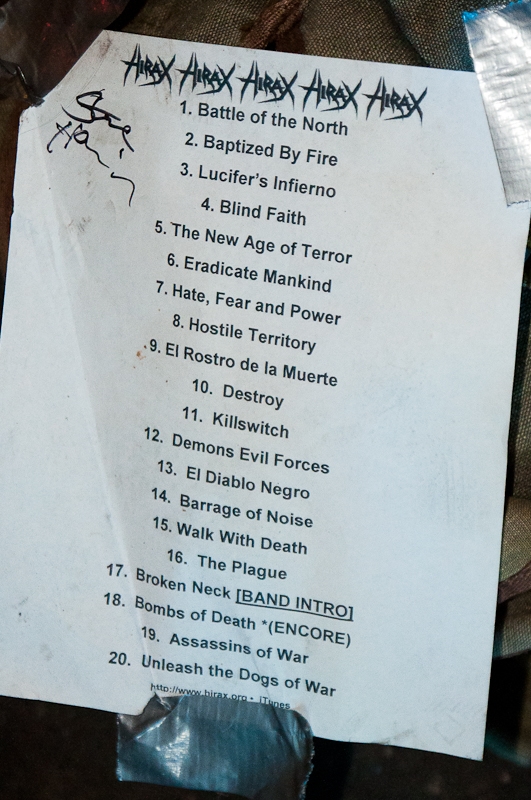 HIRAX HIRAX HIRAX HIRAX HIRAX
1. Battle of the North
2. Baptized By Fire
3. Lucifer's Infierno
4. Blind Faith
5. The New Age of Terror
6. Eradicate Mankind
7. Hate, Fear and Power
8. Hostile Territory
9. El Rostro de la Muerte
10. Destroy
11. Killswitch
12. Demons Evil Forces
13. El Diablo Negro
14. Barrage of Noise
15. Walk With Death
16. The Plague
17. Broken Neck [BAND INTRO]
18. Bombs of Death *(ENCORE)
19. Assassins of War
20. Unleash the Dogs of War
http://www.hirax.org • iTunes